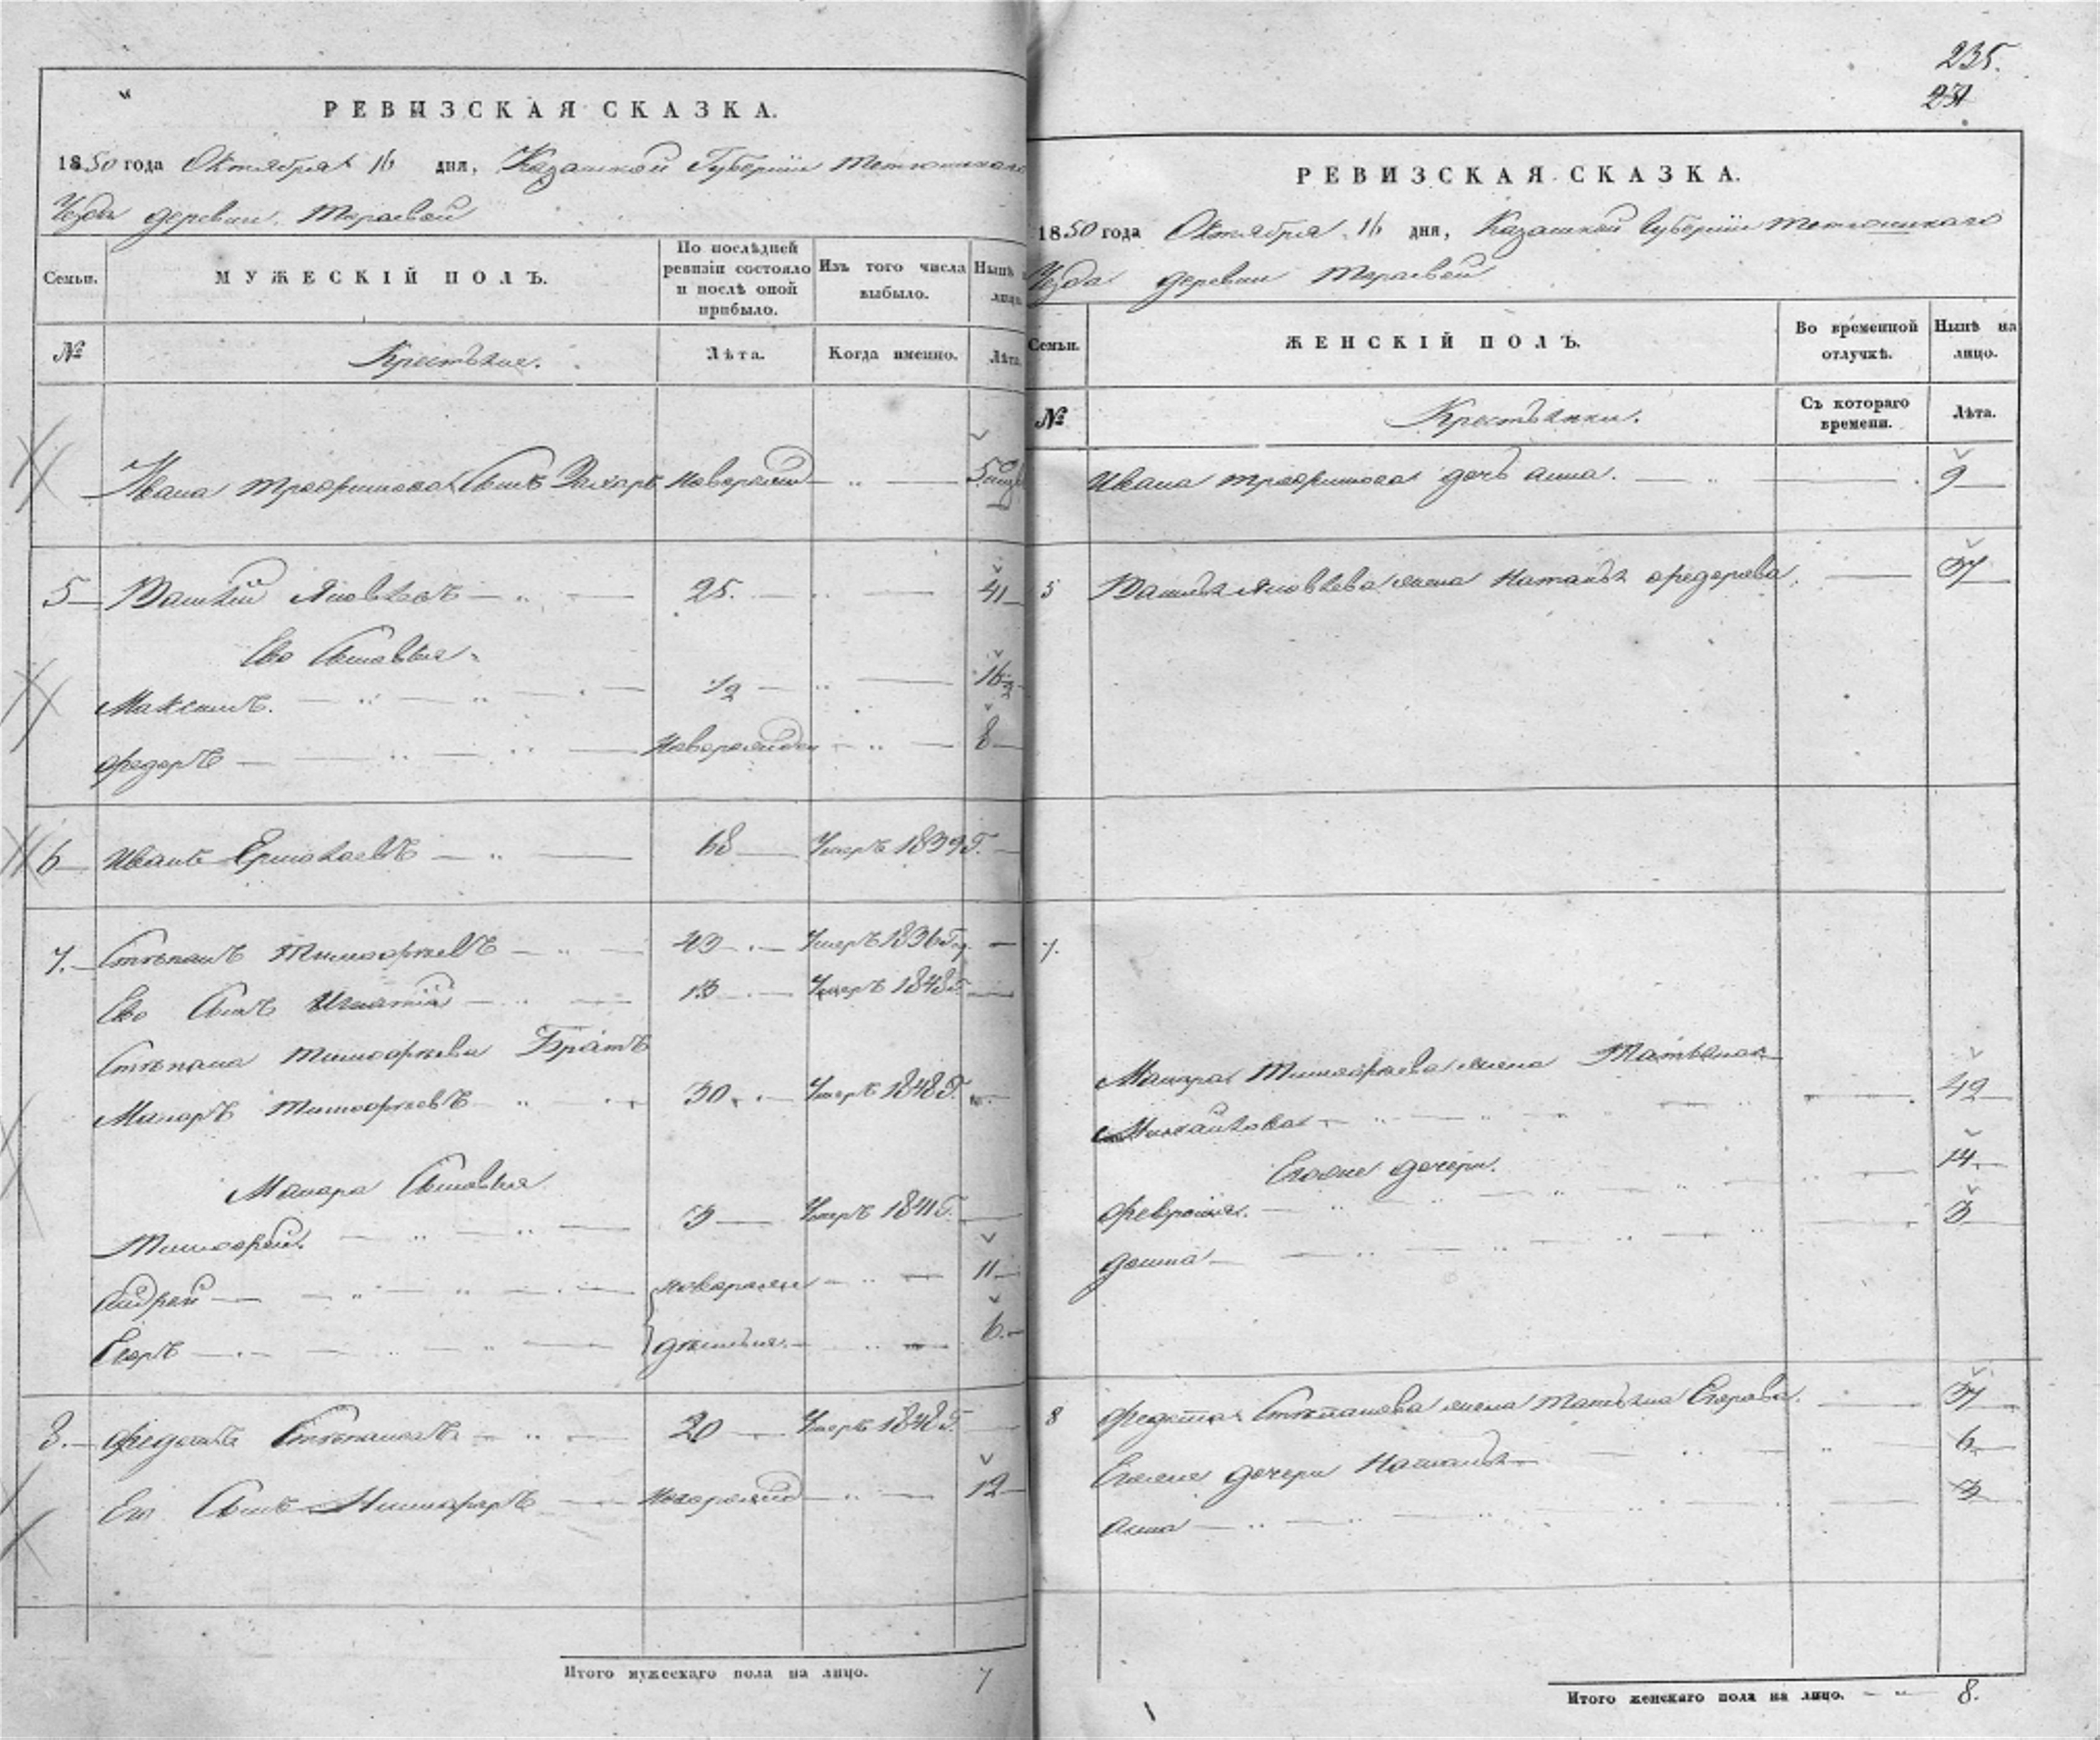 РЕВИЗСКАЯ СКАЗКА.
1850 года Октября 16 дня, Казанской Губернiи Тетюшскаго
Уезда деревни
Семьи. МУЖЕСКIЙ ПОЛЪ. По послѣдней ревизiи состояло и послѣ оной прибыло. Изъ того числа выбыло. Нынѣ лицо.
№ Крестьяне. Лѣта. Когда именно. Лѣта.
Ивана Трофимова Сынъ Захаръ новорожд 5
5 Василiй Яковлевъ 25. 41
Ево Сыновья
Максимъ. 1/2 16 1/2
Федоръ новорожден 8
6 Иванъ Ермолаевъ 68 Умеръ 1839 Г.
7. Степанъ Тимофеевъ 43 Умеръ 1836 Год.
Ево Сынъ Игнатiй 13 Умеръ 1848 Г.
Степана Тимофеева Братъ
Макаръ Тимофеевъ 30. Умеръ 1848 Г.
Макара Сыновья
Тимофей. 3 Умеръ 1841 Г.
Андрей новорож 11
Егоръ 6.
8. Федотъ Степановъ 20 Умеръ 1848 Г.
Его Сынъ Никифоръ новорожд 12
Итого мужескаго пола на лицо. 7
235.
231
РЕВИЗСКАЯ СКАЗКА.
1850 года Октября 16 дня, Казанской Губернiи Тетюшскаго
Уезда деревни
Семьи. ЖЕНСКIЙ ПОЛЪ. Во временной отлучкѣ. Нынѣ на лицо.
№ Крестьянки. Съ котораго времени. Лѣта.
Ивана Трофимова дочь Анна. 9
5 Василья Яковлева жена Наталья Федорова 37
7.
Макара Тимофеева жена Татьяна
Михайлова 42
Ея же дочери.
Феврония. 14
Домна 3
8 Федота Степанова жена Татьяна Егорова 37
Ея же дочери Наталья 6
Анна 3
Итого женскаго пола на лицо. 8.